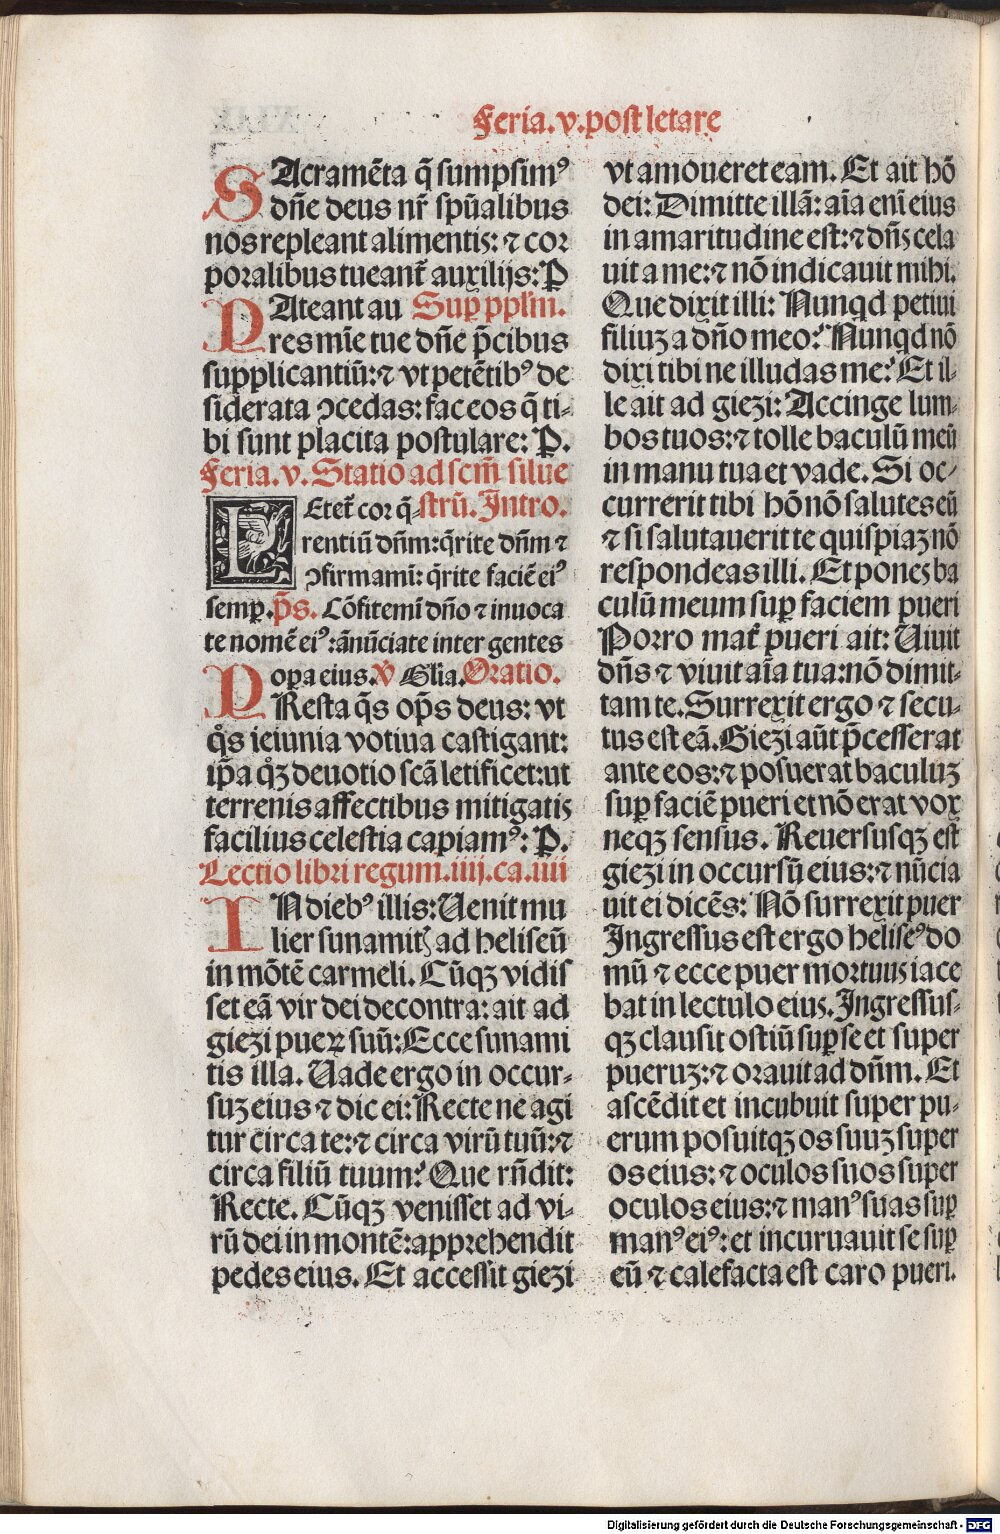 Feria.v.post letare
SAcramẽta q̃ sumpsimꝰ
dñe deus nr̃ spũalibus
nos repleant alimentis: ⁊ cor
poralibus tueant̃ auxilijs: P
PAteant au Sup ꝑplm̃.
res mĩe tue dñe p̃cibus
supplicantiũ: ⁊ vt petẽtibꝰ de
siderata ↄcedas: fac eos q̃ ti-
bi sunt placita postulare: P.
Feria.v. Statio ad scm̃ silue
LEtet̃ cor q̃- strũ. Intro.
rentiũ dñm: q̃rite dñm ⁊
ↄfirmamĩ: q̃rite faciẽ eiꝰ
semꝑ. p̃s. Cõfitemĩ dño ⁊ inuoca
te nomẽ eiꝰ: ãnũciate inter gentes
opa eius. V̾ Glia. Oratio.
PResta q̃s op̃s deus: vt
q̊s ieiunia votiua castigant:
ip̃a q̊ꝫ deuotio scã letificet: ut
terrenis affectibus mitigatis
facilius celestia capiamꝰ: P.
Lectio libri regum.iiij.ca.iiii
IN diebꝰ illis: Uenit mu
lier sunamitꝭ ad heliseũ
in mõtẽ carmeli. Cũqꝫ vidis
set eã vir dei decontra: ait ad
giezi pueꝝ suũ: Ecce sunami
tis illa. Uade ergo in occur-
suꝫ eius ⁊ dic ei: Recte ne agi
tur circa te: ⁊ circa virũ tuũ: ⁊
circa filiũ tuum? Que rñdit:
Recte. Cũqꝫ venisset ad vi-
rũ dei in montẽ: apprehendit
pedes eius. Et accessit giezi
vt amoueret eam. Et ait hõ
dei: Dimitte illã: aĩa enĩ eius
in amaritudine est: ⁊ dñs cela
uit a me: ⁊ nõ indicauit mihi.
Que dixit illi: Nunqd petiui
filiuꝫ a dño meo? Nunqd nõ
dixi tibi ne illudas me? Et il-
le ait ad giezi: Accinge lum-
bos tuos: ⁊ tolle baculũ meũ
in manu tua et vade. Si oc-
currerit tibi hõ nõ salutes eũ
⁊ si salutauerit te quispiaꝫ nõ
respondeas illi. Et pones ba
culũ meum suꝑ faciem pueri
Porro mat̃ pueri ait: Uiuit
dñs ⁊ viuit aĩa tua: nõ dimit-
tam te. Surrexit ergo ⁊ secu-
tus est eã. Giezi aũt p̃cesserat
ante eos: ⁊ posuerat baculuꝫ
suꝑ faciẽ pueri et nõ erat vox
neqꝫ sensus. Reuersusqꝫ est
giezi in occursũ eius: ⁊ nũcia
uit ei dicẽs: Nõ surrexit puer
Ingressus est ergo heliseꝰ do
mũ ⁊ ecce puer mortuus iace
bat in lectulo eius. Ingressus-
qꝫ clausit ostiũ suꝑ se et super
pueruꝫ: ⁊ orauit ad dñm. Et
ascẽdit et incubuit super pu-
erum posuitqꝫ os suuꝫ super
os eius: ⁊ oculos suos super
oculos eius: ⁊ manꝰ suas suꝑ
manꝰ eiꝰ: et incuruauit se suꝑ
eũ ⁊ calefacta est caro pueri.
Digitalisierung gefördert durch die Deutsche Forschungsgemeinschaft - DFG